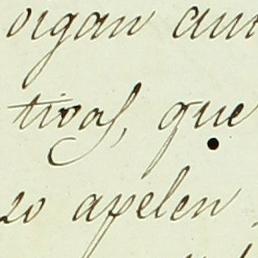 oigan aut
tivas, que
zo apelen